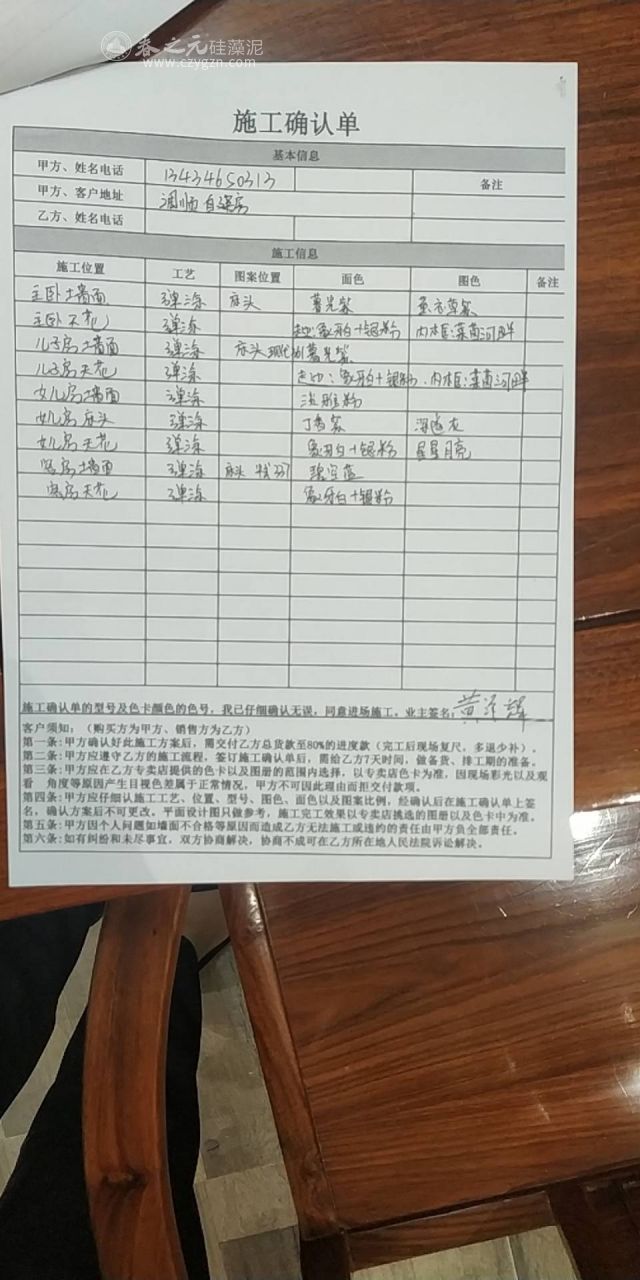 春之元硅藻泥
www.czygzn.com
施工确认单
基本信息
甲方、姓名电话 13434650313 备注
甲方、客户地址 调顺自建房
乙方、姓名电话
施工信息
施工位置 工艺 图案位置 面色 图色 备注
主卧墙面 弹涂 床头 暮光紫
主卧天花 弹涂 走边:象牙白+银粉 内框:莱茵河畔
儿子房墙面 弹涂 床头 暮光紫
儿子房天花 弹涂 走边:象牙白+银粉.内框:莱茵河畔
女儿房墙面 弹涂 淡雅粉
女儿房床头 弹涂 丁香紫
女儿房天花 弹涂 象牙白+银粉 星星月亮
客房墙面 弹涂 床头 碧空蓝
客房天花 弹涂 象牙白+银粉
施工确认单的型号及色卡颜色的色号,我已仔细确认无误,同意进场施工。业主签名:黄
客户须知:(购买方为甲方、销售方为乙方)
第一条:甲方确认好此施工方案后,需交付乙方总货款至80%的进度款(完工后现场复尺,多退少补)。
第二条:甲方应遵守乙方的施工流程,签订施工确认单后,需给乙方7天时间,做备货、排工期的准备。
第三条:甲方应在乙方专卖店提供的色卡以及图册的范围内选择,以专卖店色卡为准,因现场彩光以及观
看 角度等原因产生目视色差属于正常情况,甲方不可因此理由而拒交付款项。
第四条:甲方应仔细认施工工艺、位置、型号、图色、面色以及图案比例,经确认后在施工确认单上签
名,确认方案后不可更改。平面设计图只做参考,施工完工效果以专卖店挑选的图册以及色卡中为准。
第五条:甲方因个人问题如墙面不合格等原因而造成乙方无法施工或违约的责任由甲方负全部责任。
第六条:如有纠纷和未尽事宜,双方协商解决,协商不成可在乙方所在地人民法院诉讼解决。